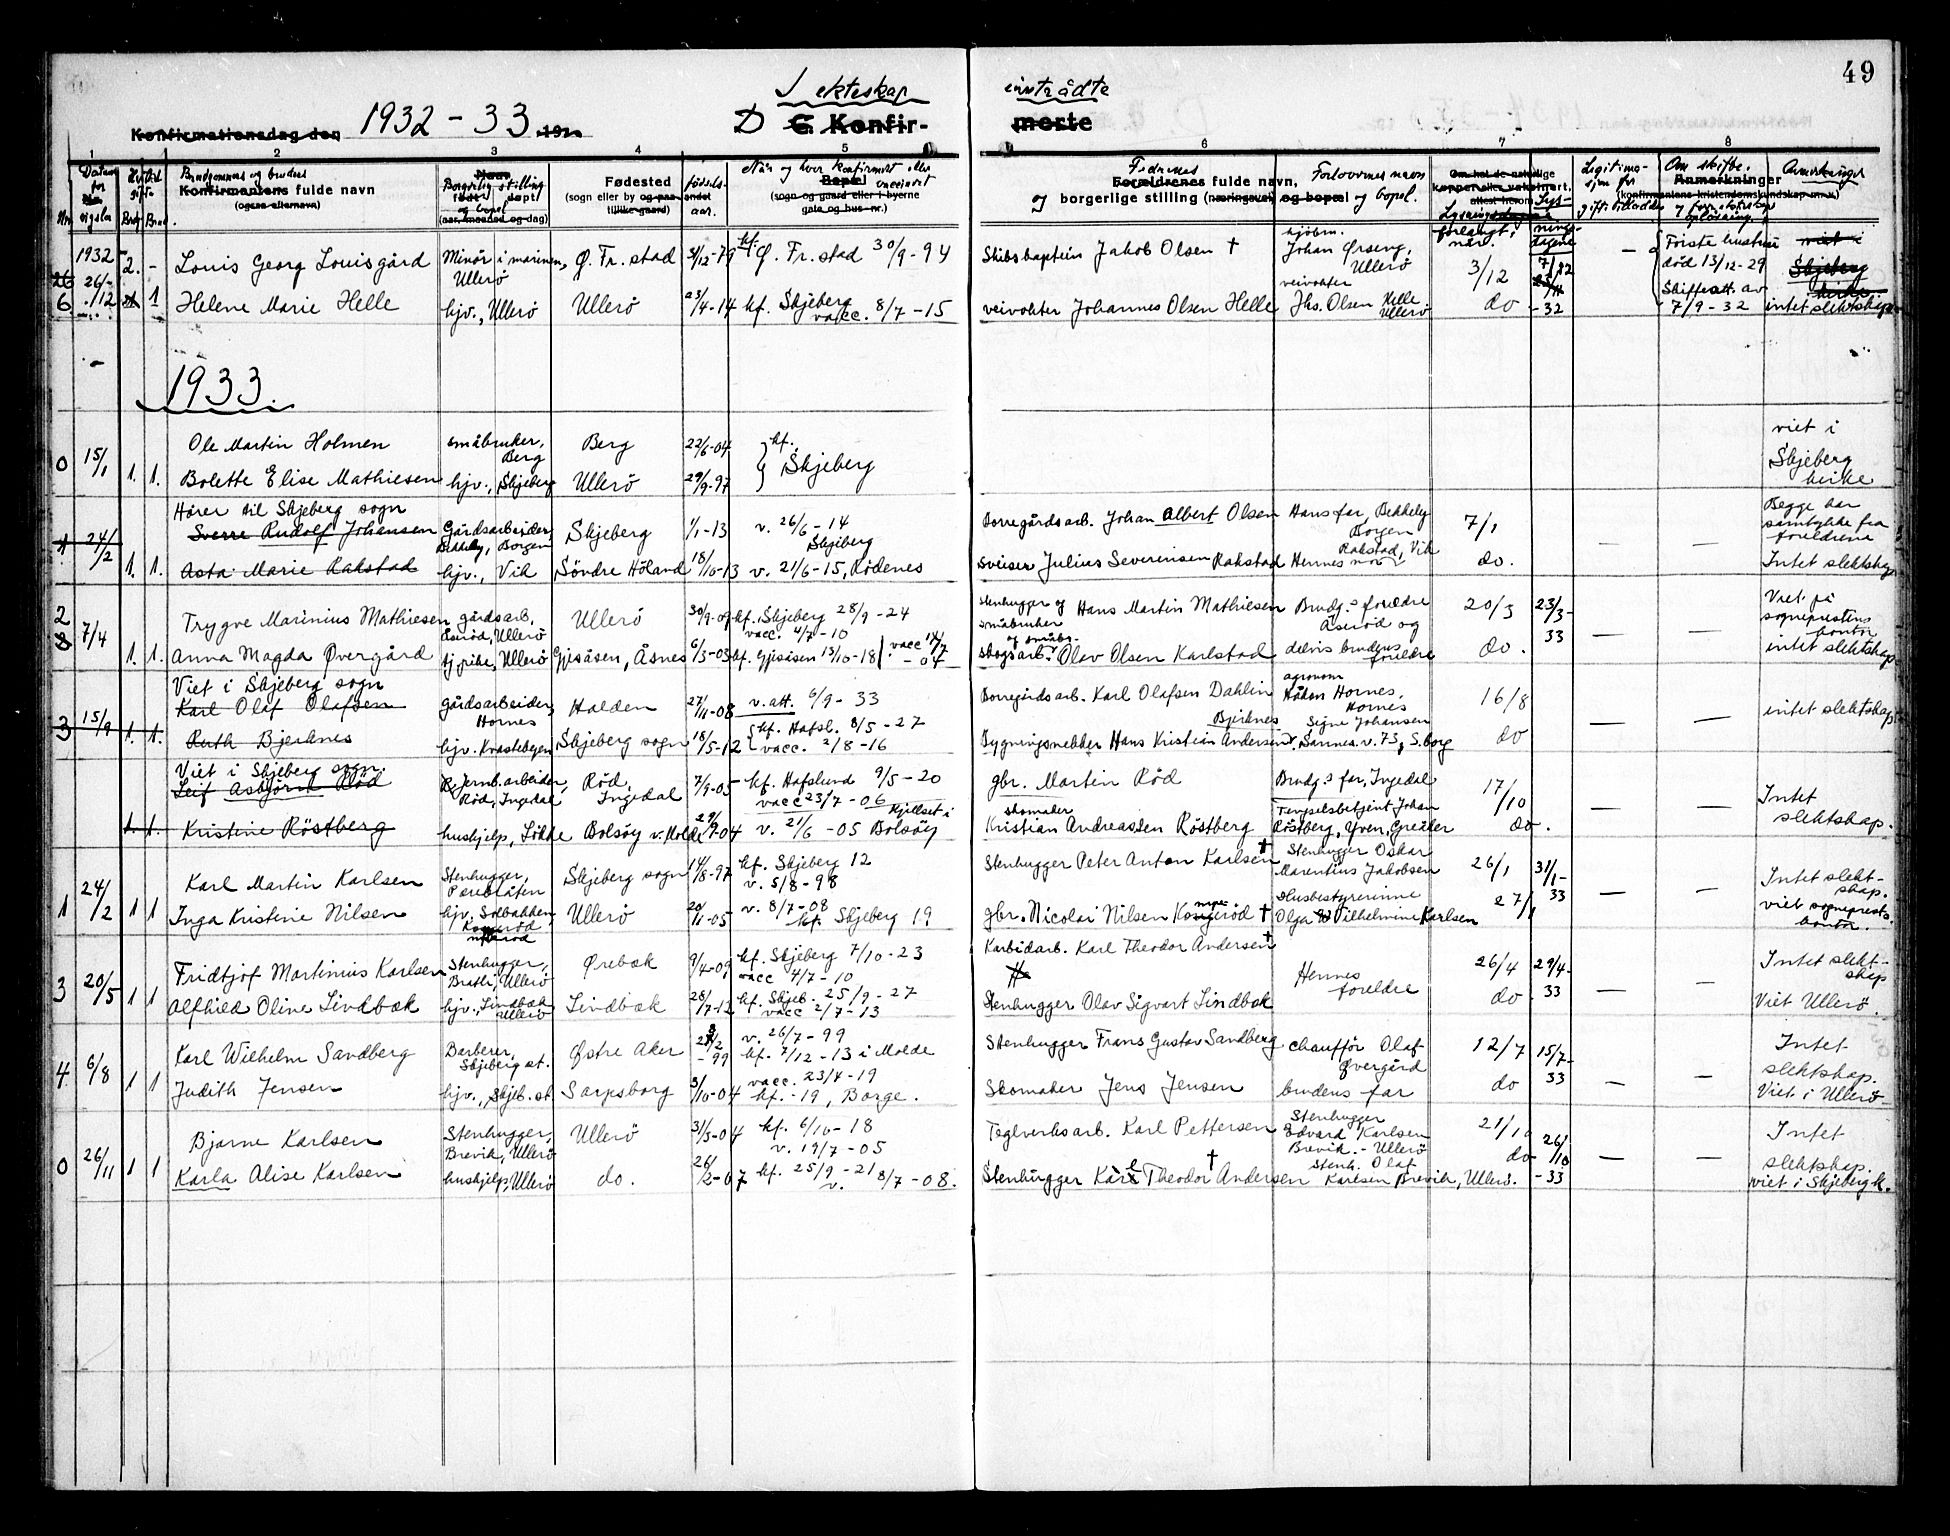 49
I ekteskap inntrådte
Konfirmationsdag den 1932 - 33 19
D C. Konfir- merte
1 2 3 4 5 6 7 8
Datum for vigselen
Brudgommens og brudens
Konfirmantens fulde navn
(ogsaa efternavn)
Borgerlig stilling og bopel
(aar, maaned og dag)
Fødested
(sogn eller by og paa landet tillike gaard)
fødsels-aar.
Når og hvor konfirmert eller vaccinert
Bopæl
(sogn og gaard eller i byerne gate og hus-nr.)
Fedrenes
Forældrenes fulde navn,
og borgerlige stilling (næringsvei) og bopæl
Forlovernes navn og bopel.
Om skifte.
Anmerkninger
Anmerkninger
1932
26/12 2. - Louis Georg Louisgård Minör i marinen, Ullerö Ø. Fr.stad 31/12-79 kf. Ø. Fr.stad 30/9-94 Skibskaptein Jakob Olsen † Johan Ørseng, Ullerö 3/12 - Förste hustru död 13/12-29 viet i Skjeberg kirke
6 1 Helene Marie Helle hjv., Ullerö Ullerö 23/4-14 kf. Skjeberg vacc. 8/7-15 veivokter Johannes Olsen Helle veivokter Jhs. Olsen Helle Ullerö do -32 Skifteatt. av 7/9-32 intet slektskap
1933.
0 15/1 Ole Martin Holmen småbruker, Berg Berg 22/6-04 kf. Skjeberg viet i Skjeberg kirke
1. 1. Bolette Elise Mathiesen hjv., Skjeberg Ullerö 29/9-97
Hörer til Skjeberg sogn
24/2 Sverre Rudolf Johansen Gårdsarbeider, Bekkely, Borgen Skjeberg 1/1-13 v. 26/6-14 Skjeberg Borregårdsarb. Johan Albert Olsen Hans far, Bekkely Borgen 7/1 Begge har samtykke fra foreldrene
1. 1. Asta Marie Rakstad hjv., Vik Söndre Höland 18/10-13 v. 21/6-15, Rödenes sveiser Julius Severinsen Rakstad Rakstad, Vik Hennes mor do. — — Intet slektskap
2 7/4 Trygve Marinius Mathiesen gårdsarb., Aseröd, Ullerö Ullerö 30/9-09 kf. Skjeberg 28/9-24 vacc. 4/7-10 Stenhugger og småbruker Hans Martin Mathiesen Brudg.s foreldre Aseröd og 20/3 23/3-33 Viet på sogneprestens kontor
1. 1. Anna Magda Øvergård tjpike, Ullerö Gjesåsen, Åsnes 6/3-03 kf. Gjesåsen 13/10-18 vacc 14/7-04 skogsarb. og småbr. Olav Olsen Karlstad delvis brudens foreldre do. — — intet slektskap
Viet i Skjeberg sogn
3 15/9 Karl Olaf Olafsen gårdsarbeider, Hornes Halden 27/11-08 v. att. 6/9-33 Borregårdsarb. Karl Olafsen Dahlin agronom Håkon Hornes, Hornes 16/8
1. 1. Ruth Bjerknes hjv. Krastebergen Skjeberg sogn 18/5-12 kf. Hafsl. 8/5-27 vacc. 2/8-16 Bygningssnekker Hans Kristian Andersen Bjerknes Signe Johansen Sannes. v. 73, S.borg do — — intet slektskap
Viet i Skjeberg sogn.
Leif Asbjörn Röd Jernb.arbeider, Röd, Ingedal Röd, Ingedal 7/9-05 kf. Hafslund 9/5-20 vacc 23/7-06 gbr. Martin Röd Brudg.s far, Ingedal 17/10 Intet slektskap.
1. 1. Kristine Röstberg hushjelp, Lökke Bolsöy v. Molde 29/9-04 v. 21/6-05 Kjellset i Bolsöy skomaker Kristian Andreassen Röstberg Fengselsbetjent Johan Röstberg, Yven, Greåker do. — —
1 24/2 Karl Martin Karlsen Stenhugger, Porebråten Skjeberg sogn 14/8-97 kf. Skjeberg 12 v. 5/8-98 Stenhugger Peter Anton Karlsen † Stenhugger Oskar Marentius Jakobsen 26/1 31/1-33 Intet slektskap.
1 1 Inga Kristine Nilsen hjv. Solbakken Ullerö 20/11-05 v. 8/7-08 kf. Skjeberg 19 gbr. Nicolai Nilsen Kongeröd † Husbestyrerinne Olga Vilhelmine Karlsen 27/1 — — viet sogneprests. kontor.
3 20/5 Fridtjof Martinius Karlsen Stenhugger, Bratli, Ullerö Ørebek 9/4-09 kf. Skjeberg 7/10-23 vacc 4/7-10 Karbidarb. Karl Theodor Andersen † Hennes foreldre 26/4 29/4-33 Intet slektskap
1 1 Alfhild Oline Lindbæk hjv., Lindbæk Ullerö Lindbæk 28/7-12 kf. Skjeb. 25/9-27 vacc 2/7-13 Stenhugger Olav Sigvart Lindbæk do — — Viet Ullerö.
4 6/8 Karl Wilhelm Sandberg Barberer, Skjeberg st. Østre Aker -99 v. 26/7-99 kf. 7/12-13 i Molde Stenhugger Frans Gustav Sandberg chaufför Olaf Øvergård 12/7 15/7-33 Intet slektskap.
1 1 Judith Jensen hjv., Skjeb. st. Sarpsborg 3/10-04 vacc. 23/4-19 kf. -19, Borge. Skomaker Jens Jensen brudens far do — — Viet i Ullerö
0 26/11 Bjarne Karlsen Stenhugger, Brevik, Ullerö Ullerö 31/3-04 kf. 6/10-18 v. 19/7-05 Teglverksarb. Karl Pettersen Stenhugger Edvard Karlsen Brevik.-Ullerö 21/10 26/10-33 Intet slektskap.
1 1 Karla Alise Karlsen hushjelp, Ullerö do. 26/2-07 kf. 25/9-21 v. 8/7-08. Stenhugger Karl Theodor Andersen † Stenh. Olaf Karlsen Brevik, Ullerö. do — — viet i Skjeberg k.